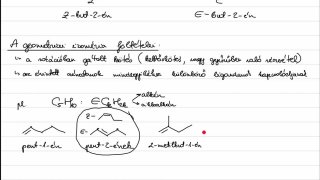 Z-but-2-én E-but-2-én
A geometriai izoméria feltételei:
a rotációban gátolt kötés (kettőskötés, vagy gyűrűben való részvétel)
az érintett atomoknak mindegyikéhez különböző ligandumok kapcsolódjanak
pl. C5H10 : alkén
cikloalkán
Z-
E-
pent-1-én pent-2-ének 2-metilbut-1-én